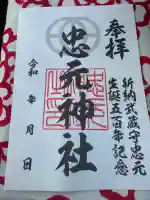 奉拝
新納武蔵守忠元
生誕五百年記念
忠元神社
令和 年 月 日